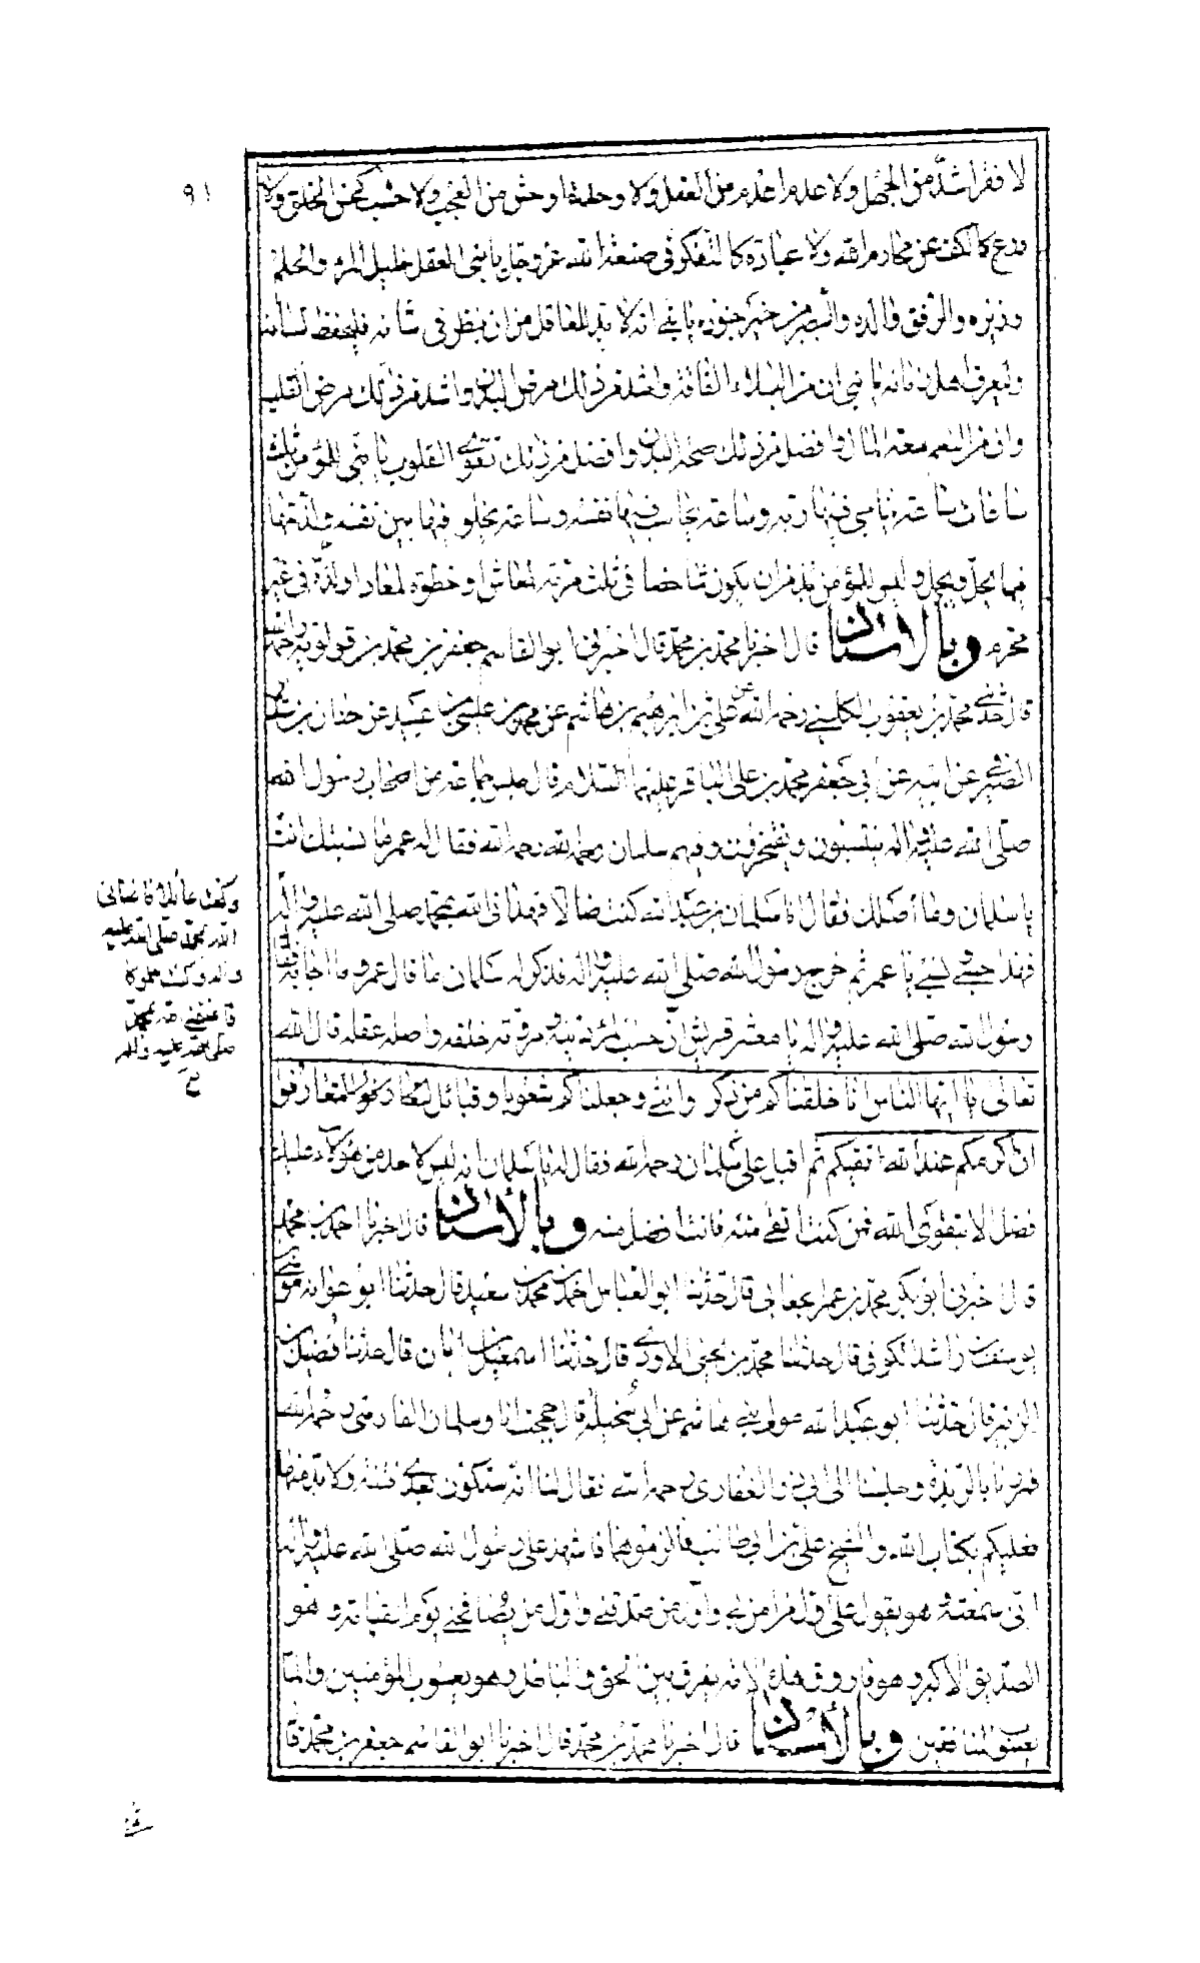 ٩١
لا فقر اشدّ من الجهل ولا عدم اعدم من العقل ولا وحدة اوحش من العجب ولا حسب كحسن الخلق ولا
ورع كالكف عن محارم الله ولا عبادة كالتفكر فى صنعة الله عز وجل يا بنى العقل خليل المرء والحلم
وزيره والرفق والده والصبر من خير جنوده يا بنى انه لا بد للعاقل من ان ينظر فى شانه فليحفظ لسانه
وليعرف اهل زمانه يا بنى ان من البلاء الفاقة واشد من ذلك مرض البدن واشد من ذلك مرض القلب
وان من النعم سعة المال وافضل من ذلك صحة البدن وافضل من ذلك تقوى القلوب يا بنى للمؤمن ثلث
ساعات ساعة يناجى فيها ربه وساعة يحاسب فيها نفسه وساعة يخلو فيها بين نفسه ولذتها
فيما يحل ويجمل وليس للمؤمن بد من ان يكون شاخصا فى ثلث مرمة لمعاش او خطوة لمعاد او لذة فى غير
محرم وبالاسناد قال اخبرنا محمد بن محمد قال اخبرنى ابو القاسم جعفر بن محمد بن قولويه رحمه الله
قال حدثنى محمد بن يعقوب الكلينى رحمه الله عن على بن ابرهيم بن هاشم عن محمد بن عيسى بن عبيد عن حنان بن سدير
الصيرفى عن ابيه عن ابى جعفر محمد بن على الباقر عليهما السلام قال جلس جماعة من اصحاب رسول الله
صلى الله عليه واله ينتسبون ويفتخرون وفيهم سلمان رحمه الله فقال له عمر ما نسبتك انت
يا سلمان وما اصلك فقال انا سلمان بن عبد الله كنت ضالا فهدانى الله بمحمد صلى الله عليه واله
فهذا حسبى ونسبى يا عمر ثم خرج رسول الله صلى الله عليه واله فذكر له سلمان ما قال عمر وما اجابه فقال
رسول الله صلى الله عليه واله يا معشر قريش ان حسب المرء دينه ومروته خلقه واصله عقله قال الله
تعالى يا ايها الناس انا خلقناكم من ذكر وانثى وجعلناكم شعوبا وقبائل لتعارفوا
ان اكرمكم عند الله اتقيكم ثم اقبل على سلمان رحمه الله فقال له يا سلمان انه ليس لاحد من هؤلاء عليك
فضل الا بتقوى الله فمن كنت اتقى منه فانت افضل منه وبالاسناد قال اخبرنا محمد بن محمد
قال اخبرنى ابو بكر محمد بن عمر الجعابى قال حدثنا ابو العباس احمد بن محمد بن سعيد قال حدثنا ابو عوانه موسى
بن يوسف بن راشد الكوفى قال حدثنا محمد بن يحيى الاودى قال حدثنا اسمعيل بن ابان قال حدثنا فضيل بن
الزبير قال حدثنا ابو عبد الله مولى بنى هاشم عن ابى سخيلة قال حججت انا وسلمان الفارسى رحمه الله
فمررنا بالربذة وجلسنا الى ابى ذر الغفارى رحمه الله فقال لنا انه ستكون بعدى فتنة ولا بد منها
فعليكم بكتاب الله والشيخ على بن ابى طالب فالزموهما فاشهد على رسول الله صلى الله عليه واله
انى سمعته وهو يقول على اول من امن بى واول من صدقنى واول من يصافحنى يوم القيامة وهو
الصديق الاكبر وهو فاروق هذه الامة يفرق بين الحق والباطل وهو يعسوب المؤمنين والمال
يعسوب المنافقين وبالاسناد قال اخبرنا محمد بن محمد قال اخبرنا ابو القاسم جعفر بن محمد قال
وكنت عائلا فاغنانى
الله بمحمد صلى الله عليه
واله وكنت مملوكا
فاعتقنى الله بمحمد
صلى الله عليه واله